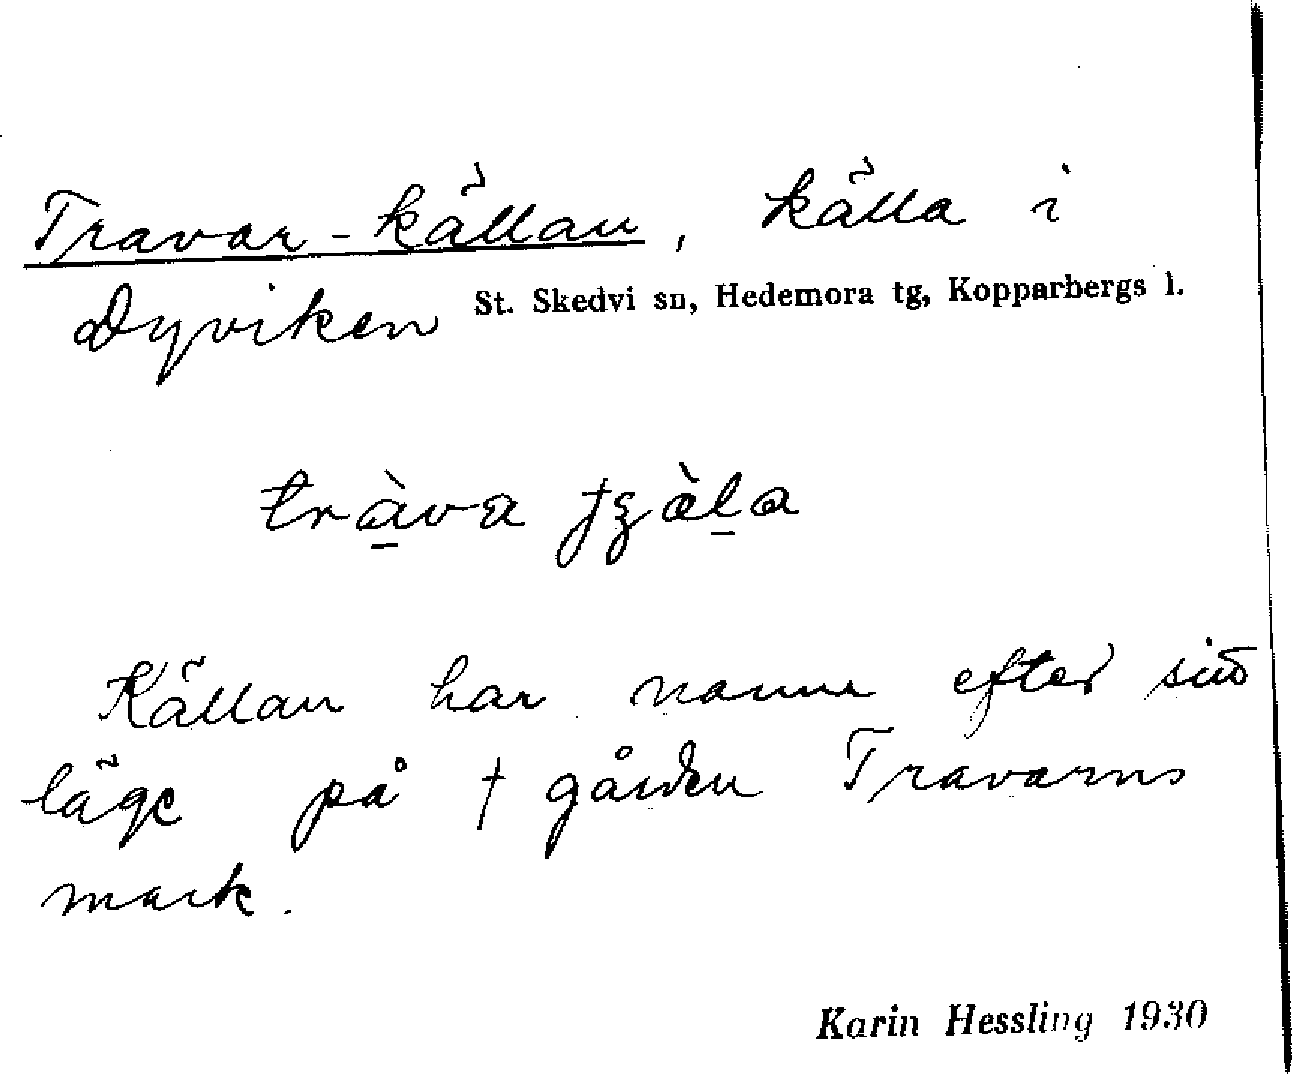 Travar-källan, källa i
Dyviken St. Skedvi sn, Hedemora tg, Kopparbergs l.
tràva tʒæ̀la
Källan har namn efter sitt
läge på † gården Travarns
mark.
Karin Hessling 1930